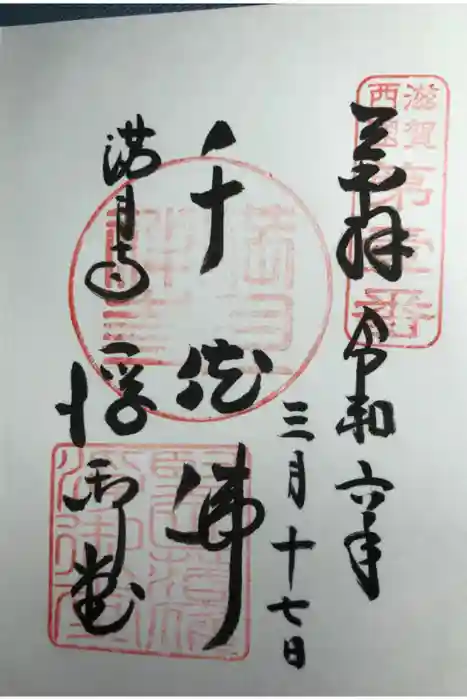 滋賀
西國
奉拝 令和六年
三月十七日
千体佛
満月寺 浮御堂